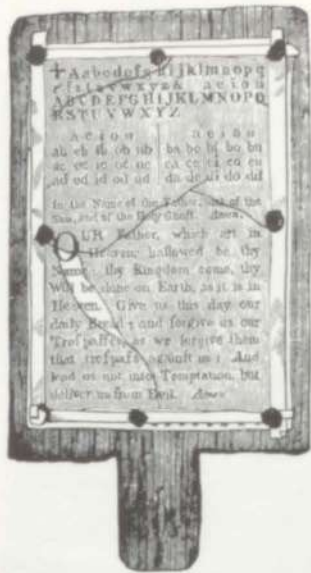 ✝Aabcdefghijklmnopq
rſstuvwxyz& aeiou
ABCDEFGHIJKLMNOPQ
RSTUVWXYZ
a e i o u a e i o u
ab eb ib ob ub ba be bi bo bu
ac ec ic oc uc ca ce ci co cu
ad ed id od ud da de di do du
In the Name of the Father, and of the
Son, and of the Holy Ghost. Amen.
OUR Father, which art in
Heaven; hallowed be thy
Name; thy Kingdom come, thy
Will be done on Earth, as it is in
Heaven. Give us this day our
daily Bread; and forgive us our
Treſpaſſes, as we forgive them
that treſpaſs againſt us: And
lead us not into Temptation, but
deliver us from Evil. Amen.